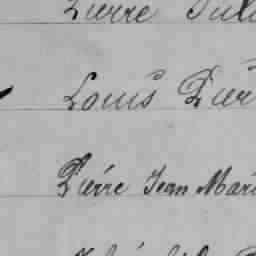 Pierre Jul
Louis Pier
Pierre Jean Mari